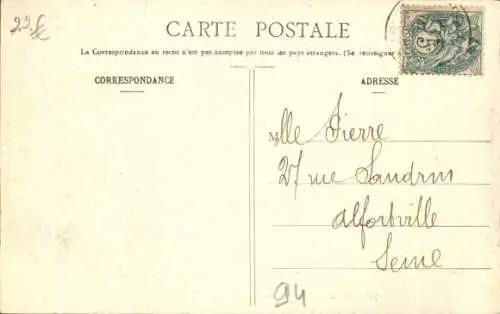 CARTE POSTALE
La Correspondance au recto n'est pas acceptée par tous les pays étrangers. (Se renseigner
CORRESPONDANCE
ADRESSE
Mlle Pierre
27 rue Landrin
Alfortville
Seine
94